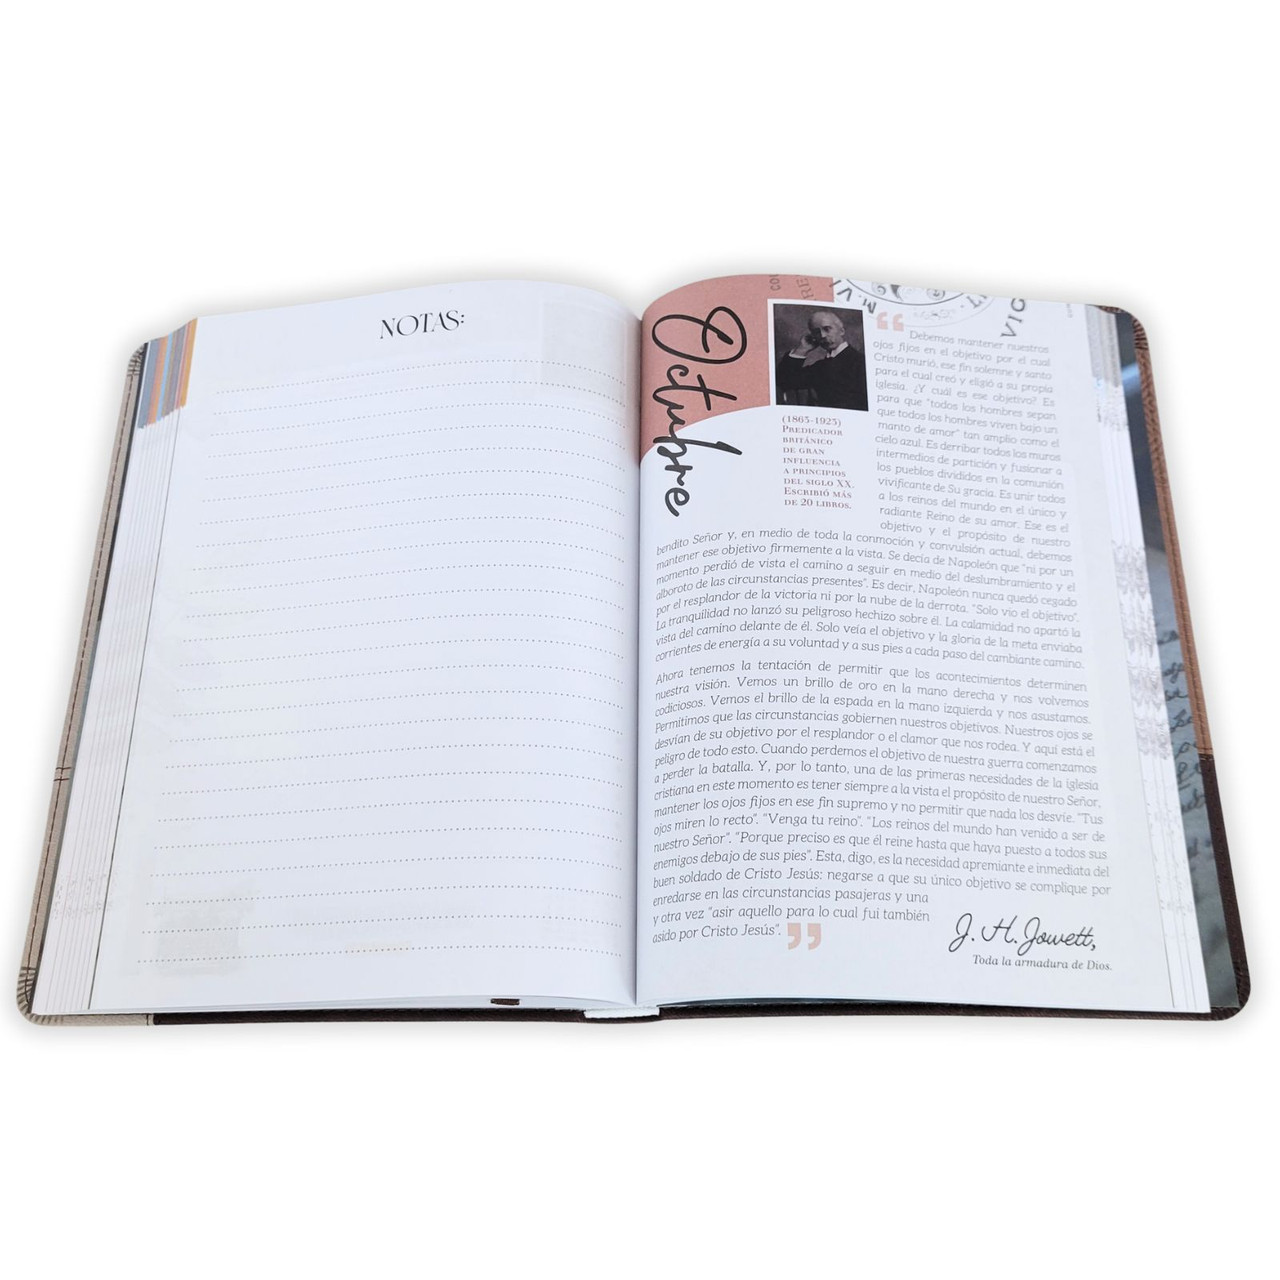 NOTAS:
Octubre
(1863-1923)
Predicador
británico
de gran
influencia
a principios
del siglo XX.
Escribió más
de 20 libros.
“
Debemos mantener nuestros
ojos fijos en el objetivo por el cual
Cristo murió, ese fin solemne y santo
para el cual creó y eligió a su propia
iglesia. ¿Y cuál es ese objetivo? Es
para que “todos los hombres sepan
que todos los hombres viven bajo un
manto de amor” tan amplio como el
cielo azul. Es derribar todos los muros
intermedios de partición y fusionar a
los pueblos divididos en la comunión
vivificante de Su gracia. Es unir todos
a los reinos del mundo en el único y
radiante Reino de su amor. Ese es el
objetivo y el propósito de nuestro
bendito Señor y, en medio de toda la conmoción y convulsión actual, debemos
mantener ese objetivo firmemente a la vista. Se decía de Napoleón que “ni por un
momento perdió de vista el camino a seguir en medio del deslumbramiento y el
alboroto de las circunstancias presentes”. Es decir, Napoleón nunca quedó cegado
por el resplandor de la victoria ni por la nube de la derrota. “Solo vio el objetivo”.
La tranquilidad no lanzó su peligroso hechizo sobre él. La calamidad no apartó la
vista del camino delante de él. Solo veía el objetivo y la gloria de la meta enviaba
corrientes de energía a su voluntad y a sus pies a cada paso del cambiante camino.
Ahora tenemos la tentación de permitir que los acontecimientos determinen
nuestra visión. Vemos un brillo de oro en la mano derecha y nos volvemos
codiciosos. Vemos el brillo de la espada en la mano izquierda y nos asustamos.
Permitimos que las circunstancias gobiernen nuestros objetivos. Nuestros ojos se
desvían de su objetivo por el resplandor o el clamor que nos rodea. Y aquí está el
peligro de todo esto. Cuando perdemos el objetivo de nuestra guerra comenzamos
a perder la batalla. Y, por lo tanto, una de las primeras necesidades de la iglesia
cristiana en este momento es tener siempre a la vista el propósito de nuestro Señor,
mantener los ojos fijos en ese fin supremo y no permitir que nada los desvíe. “Tus
ojos miren lo recto”. “Venga tu reino”. “Los reinos del mundo han venido a ser de
nuestro Señor”. “Porque preciso es que él reine hasta que haya puesto a todos sus
enemigos debajo de sus pies”. Esta, digo, es la necesidad apremiante e inmediata del
buen soldado de Cristo Jesús: negarse a que su único objetivo se complique por
enredarse en las circunstancias pasajeras y una
y otra vez “asir aquello para lo cual fui también
asido por Cristo Jesús”. ”
J. H. Jowett,
Toda la armadura de Dios.